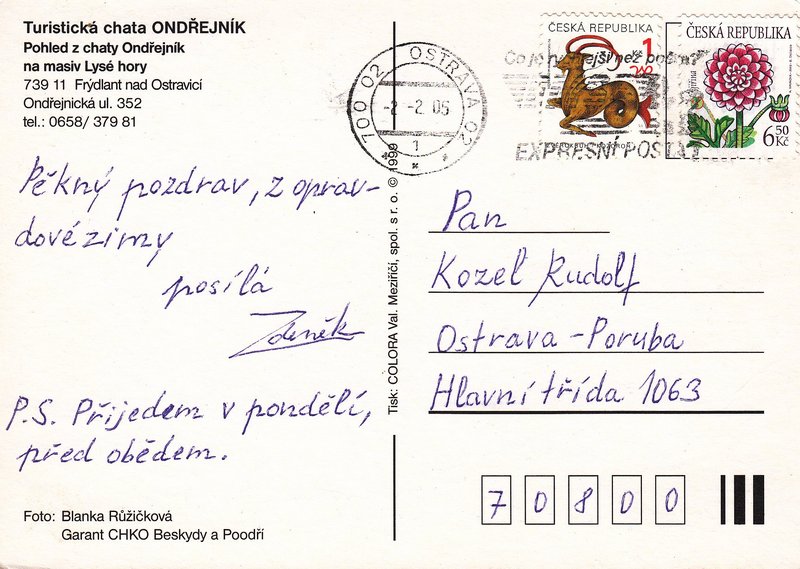 Turistická chata ONDŘEJNÍK
Pohled z chaty Ondřejník
na masiv Lysé hory
739 11 Frýdlant nad Ostravicí
Ondřejnická ul. 352
tel.: 0658/ 379 81
Pěkný pozdrav, z oprav-
dové zimy
posílá
Zdeněk
P.S. Přijedem v pondělí,
před obědem.
Foto: Blanka Růžičková
Garant CHKO Beskydy a Poodří
Tisk: COLORA Val. Meziříčí, spol. s r. o. © 1999
700 02 OSTRAVA 02
-2.-2.05
1
ČESKÁ REPUBLIKA
1 Kč
ČESKÁ REPUBLIKA
6,50
Kč
Co je
než
EXPRESNÍ POŠTA
Pan
Kozel Rudolf
Ostrava - Poruba
Hlavní třída 1063
70800